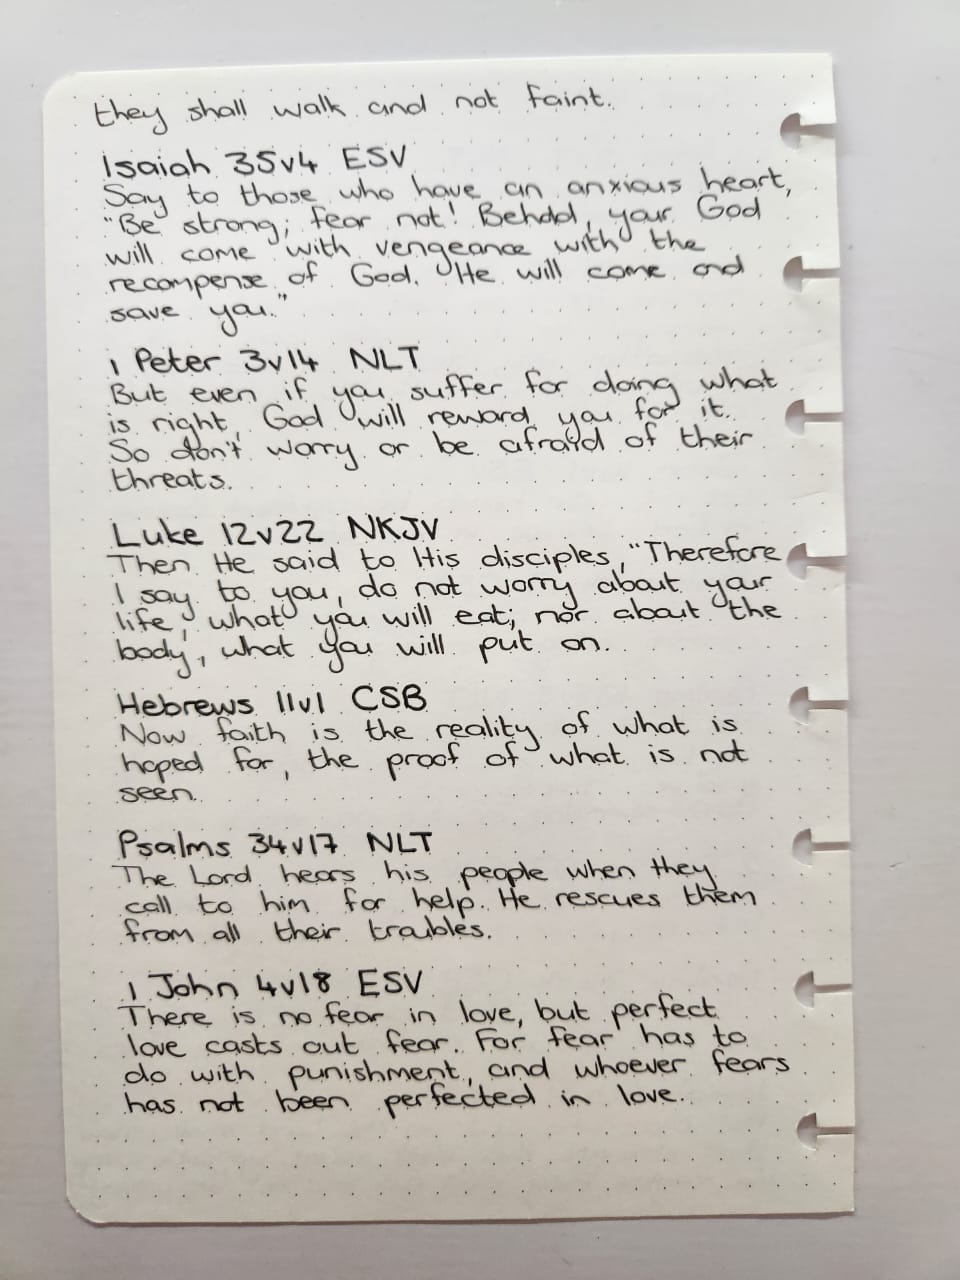 they shall walk and not faint.
Isaiah 35v4 ESV
Say to those who have an anxious heart,
"Be strong; fear not! Behold, your God
will come with vengeance with the
recompense of God. He will come and
save you."
1 Peter 3v14 NLT
But even if you suffer for doing what
is right, God will reward you for it.
So don't worry or be afraid of their
threats.
Luke 12v22 NKJV
Then He said to His disciples, "Therefore
I say to you, do not worry about your
life, what you will eat; nor about the
body, what you will put on.
Hebrews 11v1 CSB
Now faith is the reality of what is
hoped for, the proof of what is not
seen.
Psalms 34v17 NLT
The Lord hears his people when they
call to him for help. He rescues them
from all their troubles.
1 John 4v18 ESV
There is no fear in love, but perfect
love casts out fear. For fear has to
do with punishment, and whoever fears
has not been perfected in love.